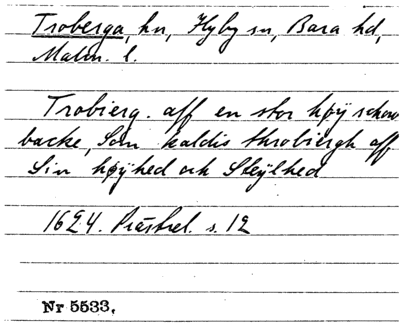 Troberga, hn, Hyby sn, Bara hd,
Malm. l.
Trobierg. aff en stor høÿ schouf
backe, Som kaldis throbiergh aff
Sin høÿhed och Steÿlhed
1624. Prästrel. s. 12
Nr 5533.